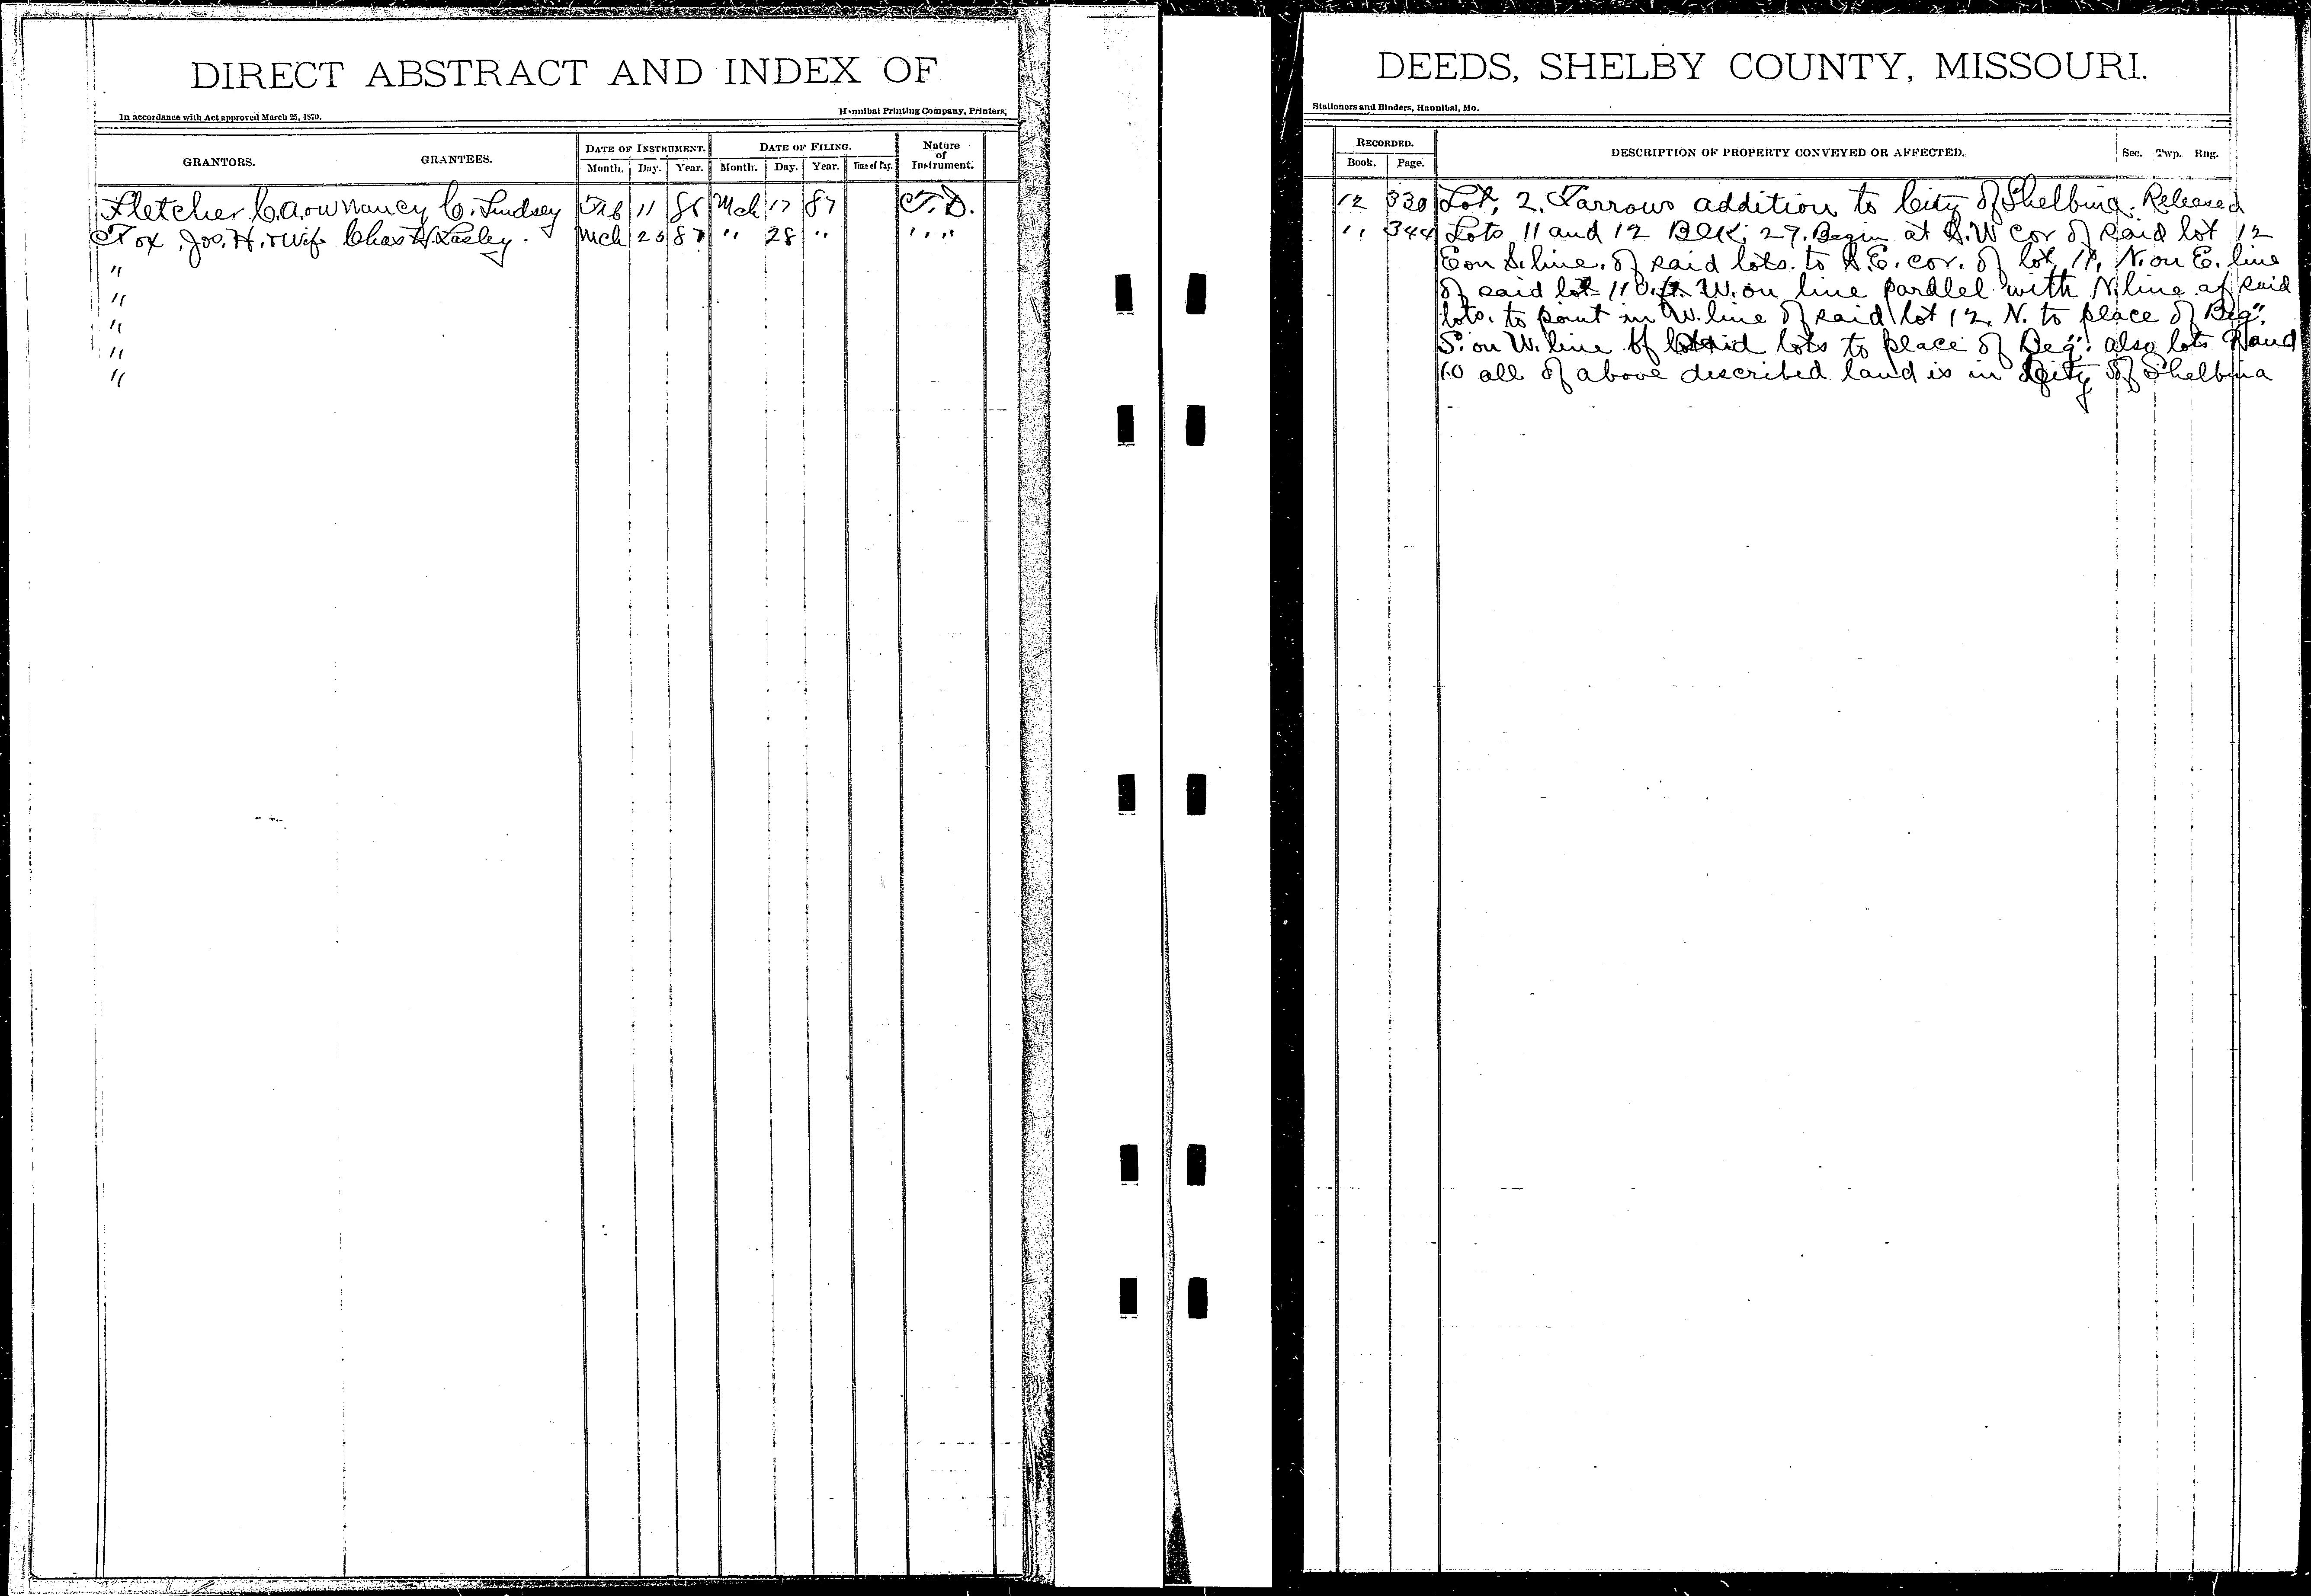 DIRECT ABSTRACT AND INDEX OF
In accordance with Act approved March 25, 1870.
Hannibal Printing Company, Printers,
GRANTORS. GRANTEES. DATE OF INSTRUMENT. DATE OF FILING. Nature of Instrument.
Month. Day. Year. Month. Day. Year. Time of Day.
Fletcher C.A. Nancy C. Lindsey Feb 11 Mch 17 87 T.D.
Fox, Jos. H. & Wife Chas H. Lasley. Mch 87 " 28 " " "
"
"
"
"
"
DEEDS, SHELBY COUNTY, MISSOURI.
Stationers and Binders, Hannibal, Mo.
RECORDED. DESCRIPTION OF PROPERTY CONVEYED OR AFFECTED. Sec. Twp. Rng.
Book. Page.
12 330 Lot, 2. Farrows addition to City of Shelbina. Released
" 344 Lots 11 and 12 BLK. 27. Begin at S.W cor of said lot 12
E on S. line. of said lots. to S.E. cor. of lot 11, N. on E. line
of said lot 110 ft. W. on line parallel with N. line of said
lots. to point in W. line of said lot 12, N. to place of Beg".
S. on W. line of said lots to place of Beg". also lots 9 and
10 all of above described land is in City of Shelbina